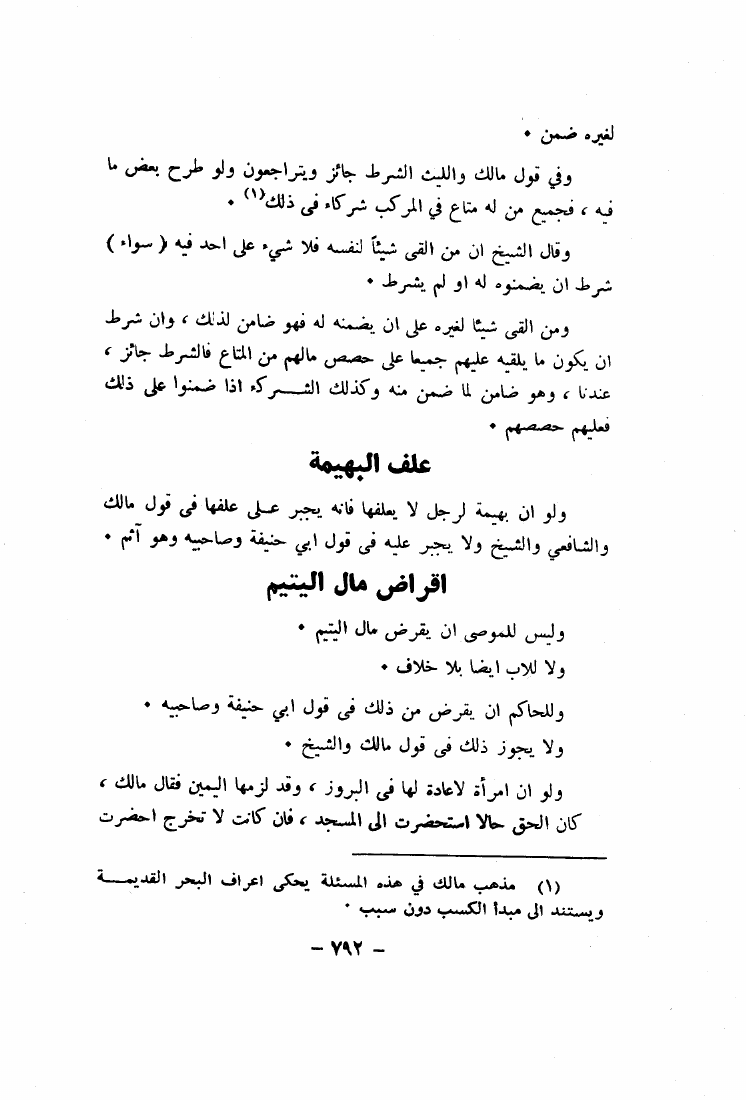 لغيره ضمن ٠
وفي قول مالك والليث الشرط جائز ويتراجعون ولو طرح بعض ما
فيه ، فجميع من له متاع في المركب شركاء فى ذلك(١) ٠
وقال الشيخ ان من القى شيئاً لنفسه فلا شيء على احد فيه ( سواء )
شرط ان يضمنوه له او لم يشرط ٠
ومن القى شيئا لغيره على ان يضمنه له فهو ضامن لذلك ، وان شرط
ان يكون ما يلقيه عليهم جميعا على حصص مالهم من المتاع فالشرط جائز ،
عندنا ، وهو ضامن لما ضمن منه وكذلك الشركاء اذا ضمنوا على ذلك
فعليهم حصصهم ٠
علف البهيمة
ولو ان بهيمة لرجل لا يعلفها فانه يجبر على علفها فى قول مالك
والشافعي والشيخ ولا يجبر عليه فى قول ابي حنيفة وصاحبيه وهو آثم ٠
اقراض مال اليتيم
وليس للموصى ان يقرض مال اليتيم ٠
ولا للاب ايضا بلا خلاف ٠
وللحاكم ان يقرض من ذلك فى قول ابي حنيفة وصاحبيه ٠
ولا يجوز ذلك فى قول مالك والشيخ ٠
ولو ان امرأة لاعادة لها فى البروز ، وقد لزمها اليمين فقال مالك ،
كان الحق حالا استحضرت الى المسجد ، فان كانت لا تخرج احضرت
(١) مذهب مالك في هذه المسئلة يحكى اعراف البحر القديمة
ويستند الى مبدأ الكسب دون سبب ٠
– ٧٩٢ –